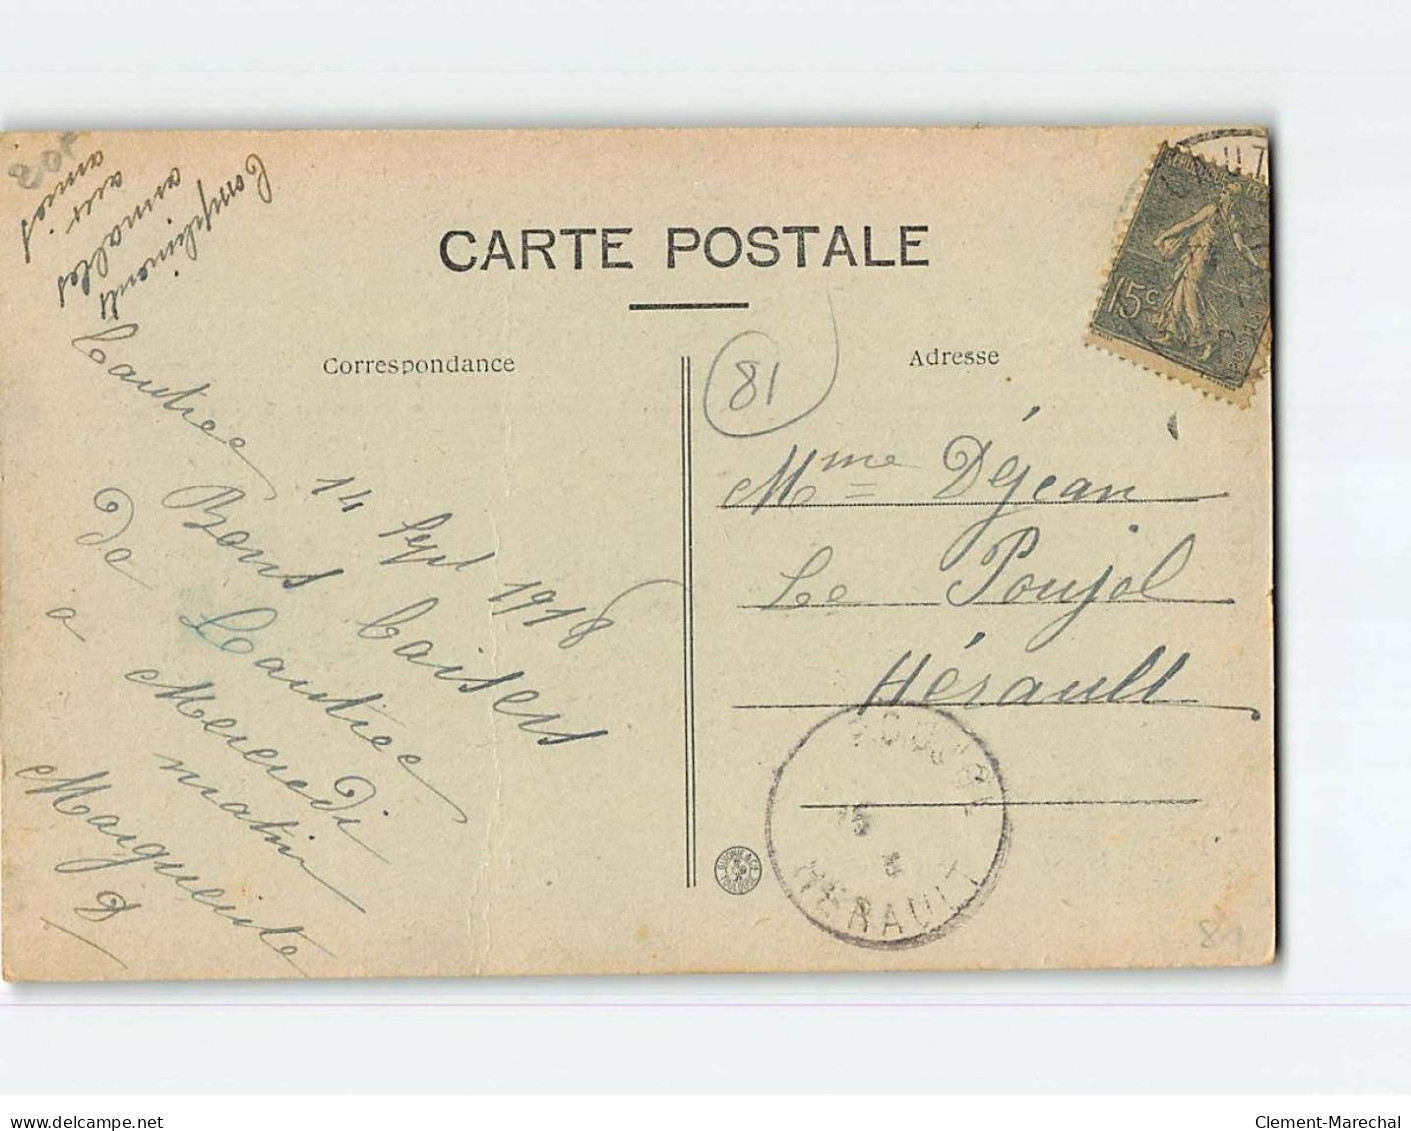 CARTE POSTALE
Correspondance
Adresse
Compliments
aimables
aux
amies
Lautrec 14 Sept 1918
Bons baisers
De Lautrec
à Mercredi
matin
Marguerite
D
81
Mme Déjean
Le Poujol
Hérault
15c
POUJOL
HERAULT
81
www.delcampe.net
Clement-Marechal